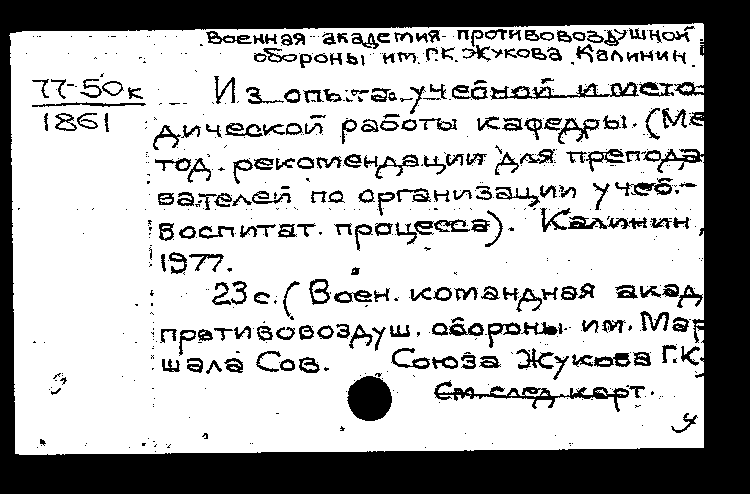 Военная академия противовоздушной
обороны им. Г.К. Жукова. Калинин.
77-50к
1861
Из опыта учебной и мето-
дической работы кафедры. (Ме
тод. рекомендации для препода-
вателей по организации учеб.-
воспитат. процесса). Калинин,
1977.
23 с. (Воен. командная акад.
противовоздуш. обороны им. Мар
шала Сов. Союза Жукова Г.К.
См. след. карт.